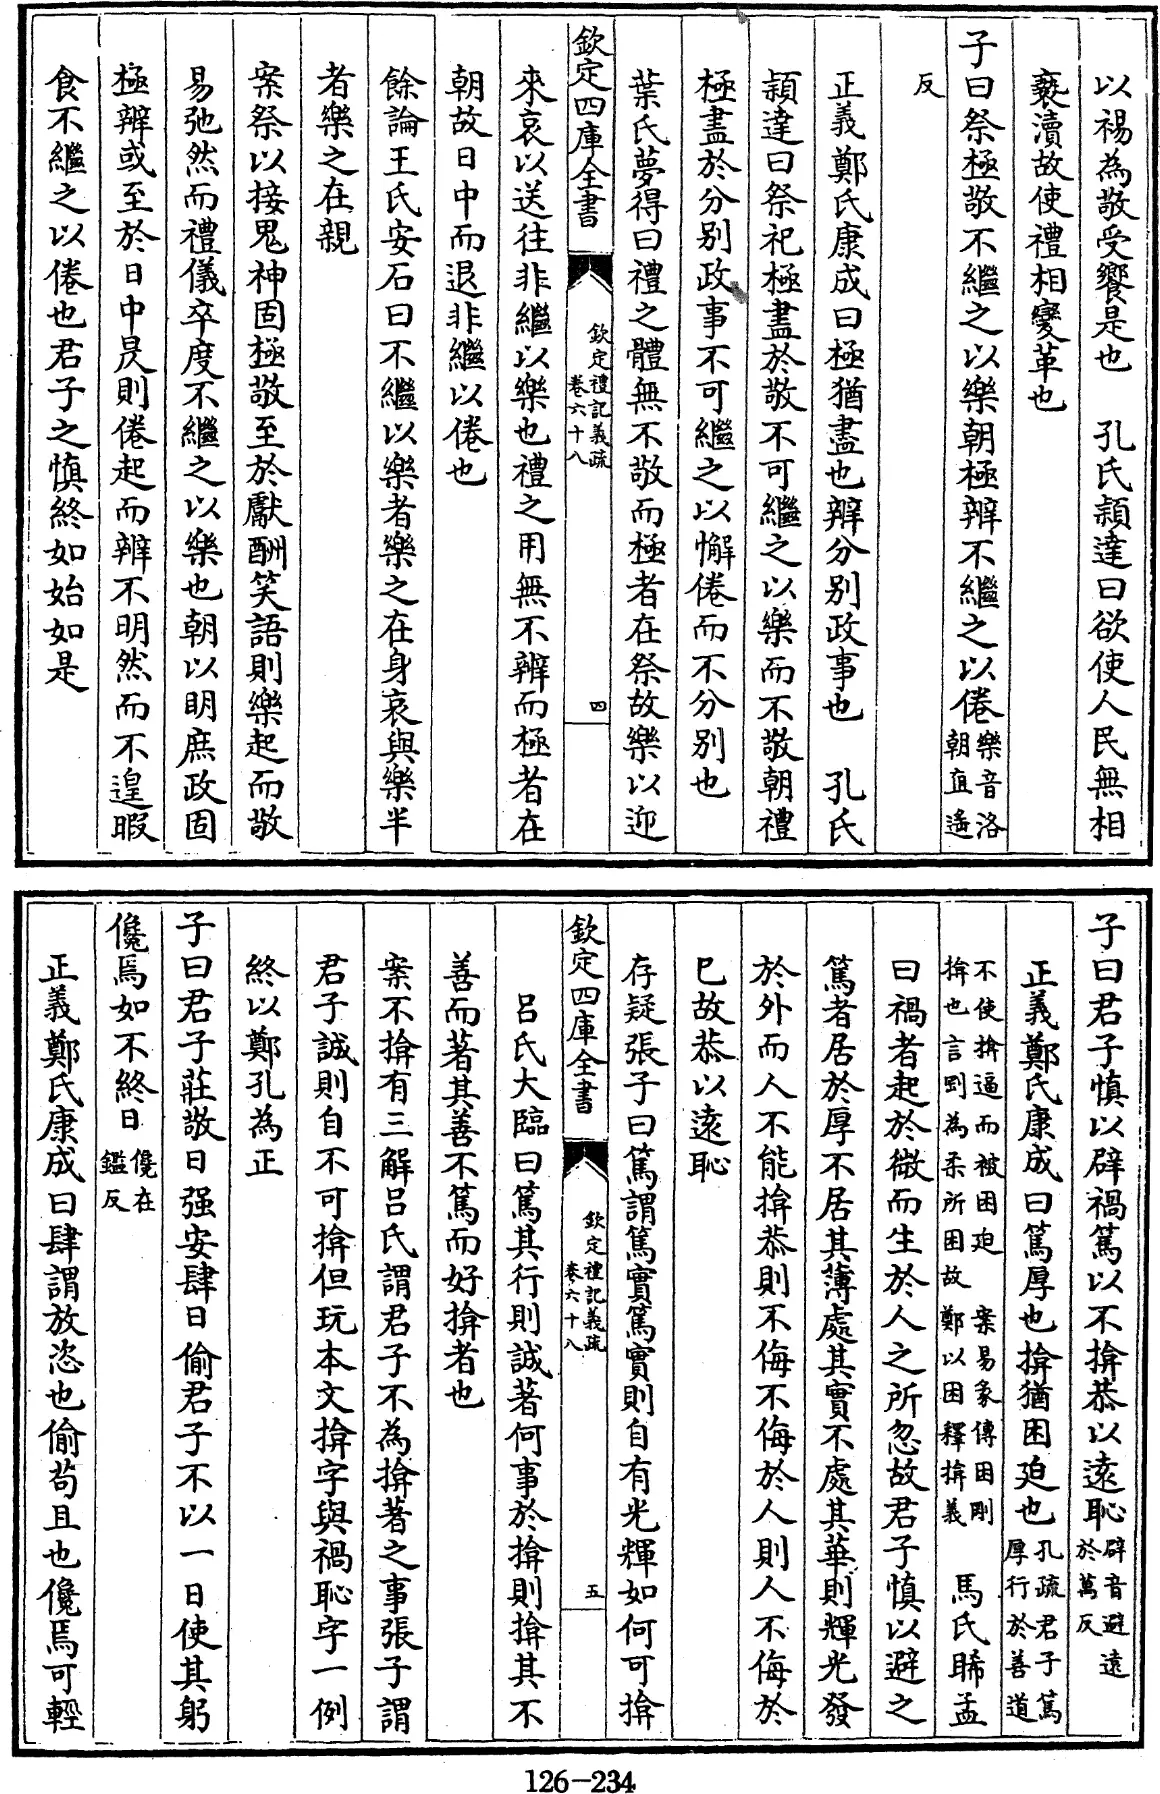 以裼為敬受饗是也　孔氏頴達曰欲使人民無相
褻瀆故使禮相變革也
子曰祭極敬不繼之以樂朝極辨不繼之以倦樂音洛朝直遙
反
正義鄭氏康成曰極猶盡也辨分別政事也　孔氏
頴達曰祭祀極盡於敬不可繼之以樂而不敬朝禮
極盡於分別政事不可繼之以懈倦而不分別也
葉氏夢得曰禮之體無不敬而極者在祭故樂以迎
欽定四庫全書
欽定禮記義疏
卷六十八
四
來哀以送往非繼以樂也禮之用無不辨而極者在
朝故日中而退非繼以倦也
餘論王氏安石曰不繼以樂者樂之在身哀與樂半
者樂之在親
案祭以接鬼神固極敬至於獻酬笑語則樂起而敬
易弛然而禮儀卒度不繼之以樂也朝以明庶政固
極辨或至於日中昃則倦起而辨不明然而不遑暇
食不繼之以倦也君子之慎終如始如是
子曰君子慎以辟禍篤以不揜恭以遠恥辟音避遠於萬反
正義鄭氏康成曰篤厚也揜猶困廹也孔疏君子篤厚行於善道
不使揜逼而被困廹　案易彖傳困剛
揜也言剛為柔所困故　鄭以困釋揜義
馬氏睎孟
曰禍者起於微而生於人之所忽故君子慎以避之
篤者居於厚不居其薄處其實不處其華則輝光發
於外而人不能揜恭則不侮不侮於人則人不侮於
已故恭以遠恥
存疑張子曰篤謂篤實篤實則自有光輝如何可揜
欽定四庫全書
欽定禮記義疏
卷六十八
五
呂氏大臨曰篤其行則誠著何事於揜則揜其不
善而著其善不篤而好揜者也
案不揜有三解呂氏謂君子不為揜著之事張子謂
君子誠則自不可揜但玩本文揜字與禍恥字一例
終以鄭孔為正
子曰君子莊敬日强安肆日偷君子不以一日使其躬
儳焉如不終日儳在鑑反
正義鄭氏康成曰肆謂放恣也偷苟且也儳焉可輕
126-234